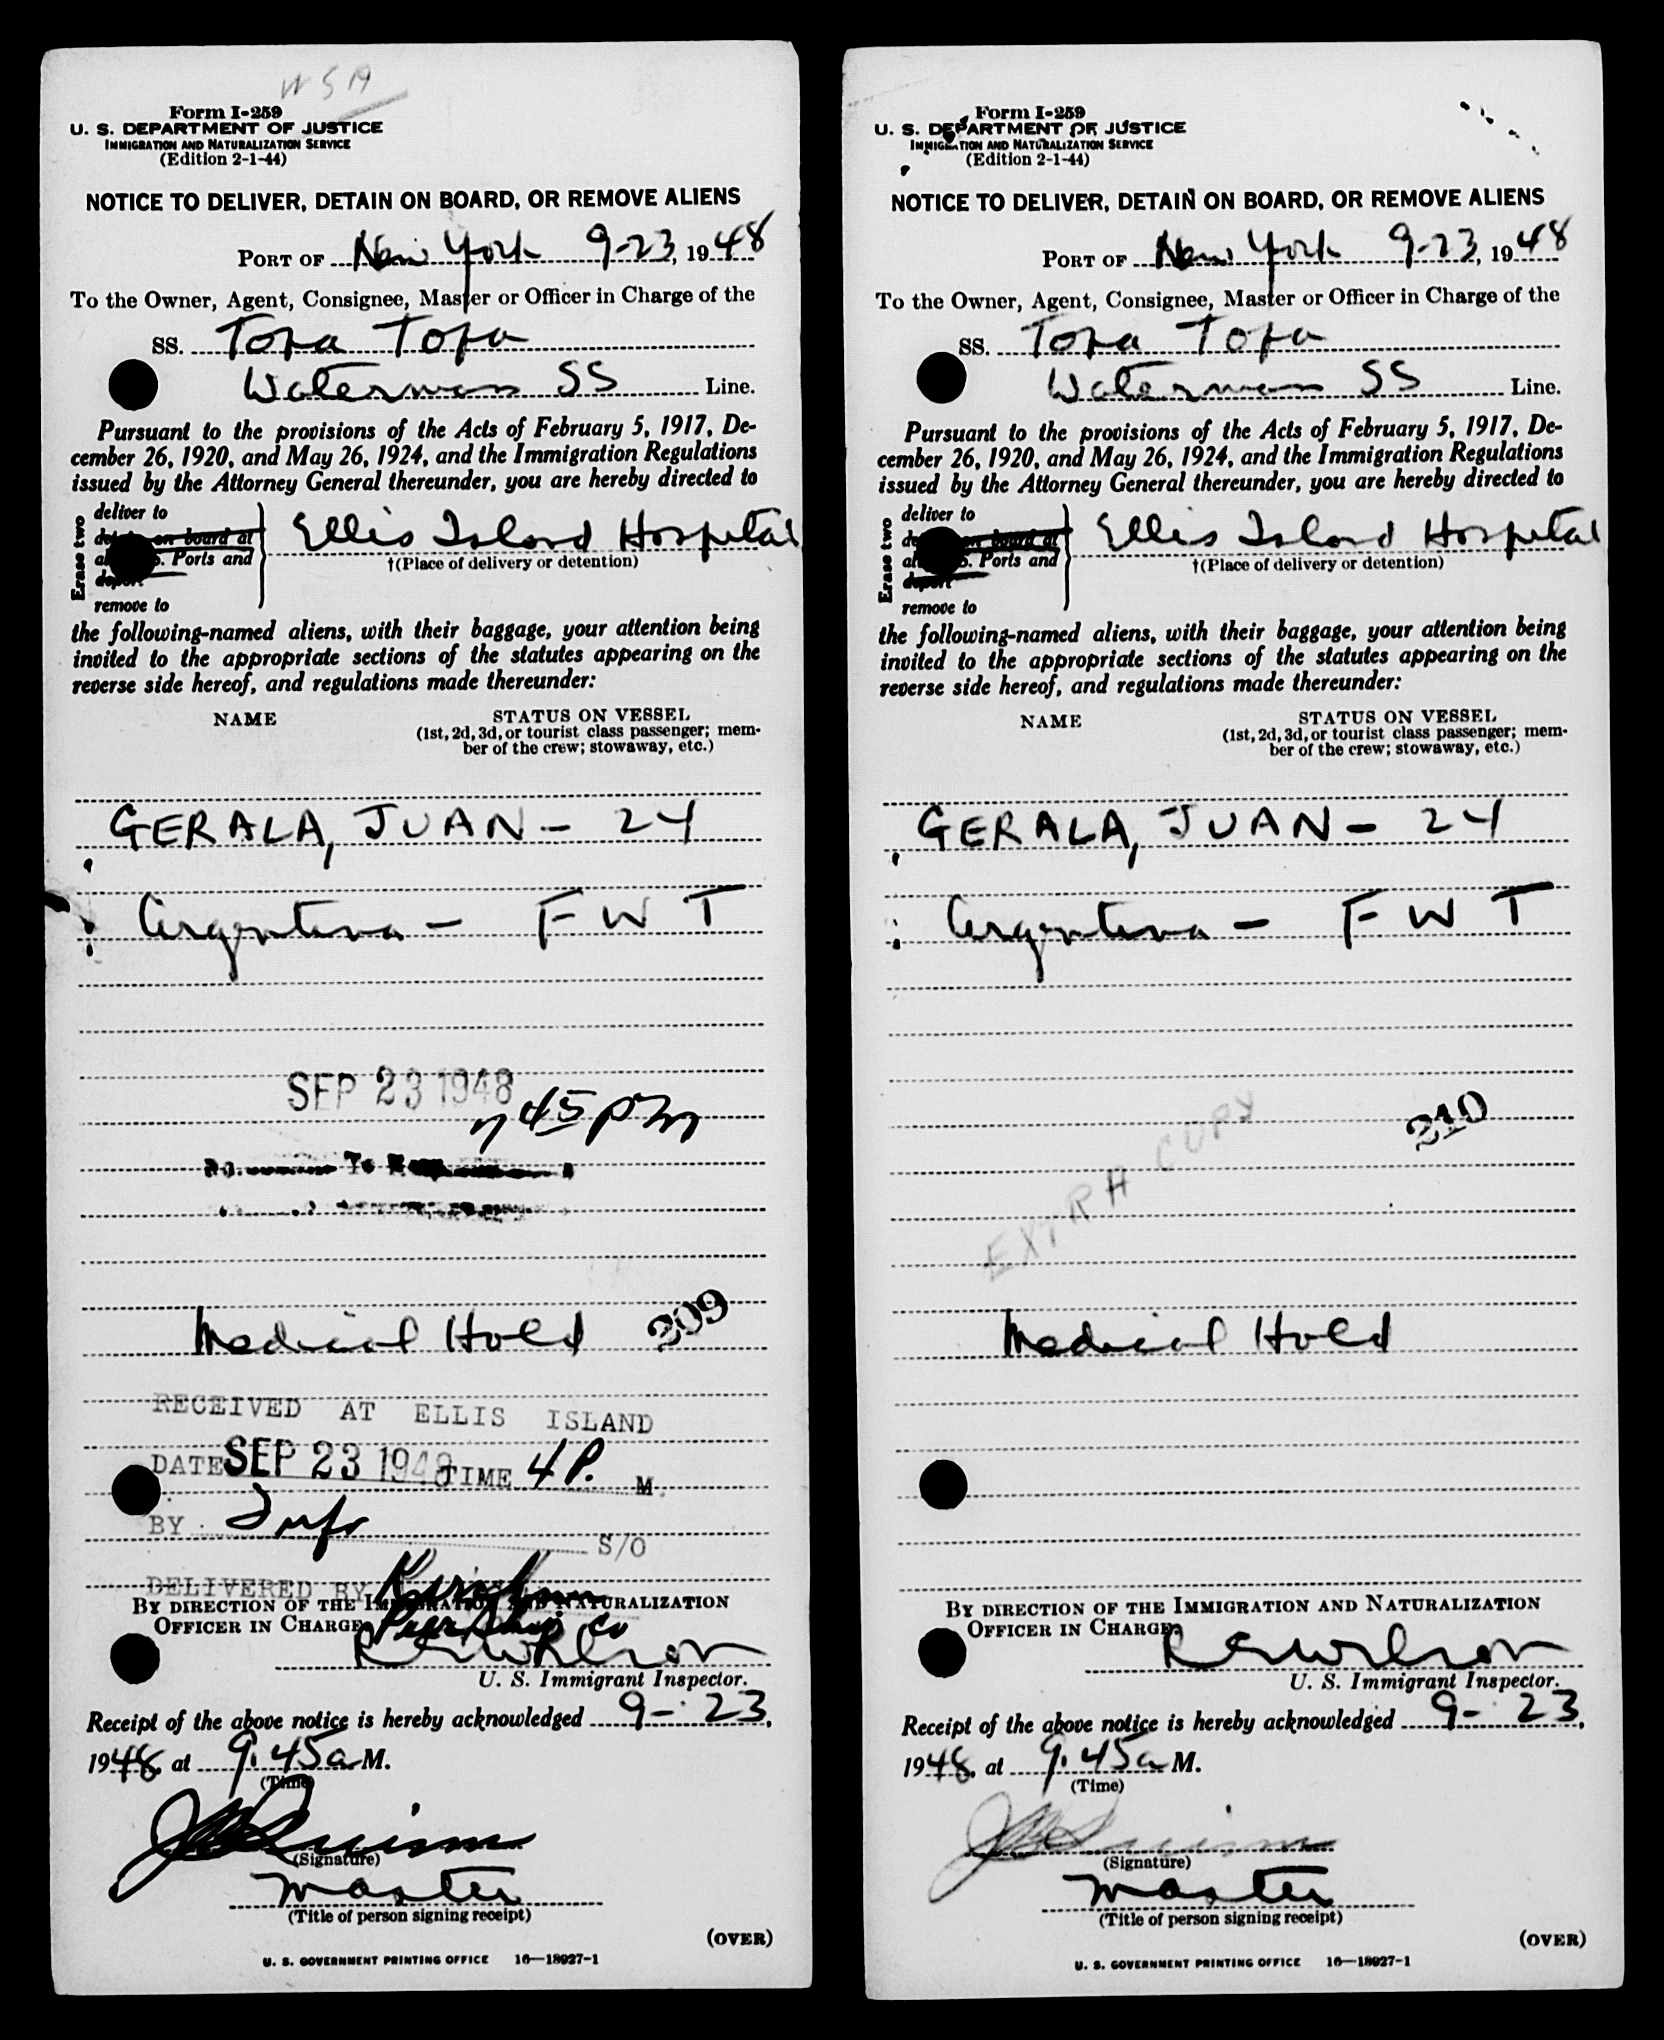 W S A
Form I-259
U. S. DEPARTMENT OF JUSTICE
IMMIGRATION AND NATURALIZATION SERVICE
(Edition 2-1-44)
NOTICE TO DELIVER, DETAIN ON BOARD, OR REMOVE ALIENS
PORT OF New York 9-23, 1948
To the Owner, Agent, Consignee, Master or Officer in Charge of the
SS. Topa Topa
Waterman SS Line.
Pursuant to the provisions of the Acts of February 5, 1917, De-
cember 26, 1920, and May 26, 1924, and the Immigration Regulations
issued by the Attorney General thereunder, you are hereby directed to
Erase two
deliver to
on board at
Ports and
deport
remove to
Ellis Island Hospital
†(Place of delivery or detention)
the following-named aliens, with their baggage, your attention being
invited to the appropriate sections of the statutes appearing on the
reverse side hereof, and regulations made thereunder:
NAME
STATUS ON VESSEL
(1st, 2d, 3d, or tourist class passenger; mem-
ber of the crew; stowaway, etc.)
GERALA, JUAN - 24
Argentina - F W T
SEP 23 1948
7 45 pm
To
Medical Hold 209
RECEIVED AT ELLIS ISLAND
DATE SEP 23 1948 TIME 4 P. M.
BY S/O
DELIVERED BY
BY DIRECTION OF THE IMMIGRATION AND NATURALIZATION
OFFICER IN CHARGE:
Wilson
U. S. Immigrant Inspector.
Receipt of the above notice is hereby acknowledged 9-23,
1948, at 9.45a M.
(Time)
(Signature)
Master
(Title of person signing receipt)
(OVER)
U. S. GOVERNMENT PRINTING OFFICE 16—18927-1
Form I-259
U. S. DEPARTMENT OF JUSTICE
IMMIGRATION AND NATURALIZATION SERVICE
(Edition 2-1-44)
NOTICE TO DELIVER, DETAIN ON BOARD, OR REMOVE ALIENS
PORT OF New York 9-23, 1948
To the Owner, Agent, Consignee, Master or Officer in Charge of the
SS. Topa Topa
Waterman SS Line.
Pursuant to the provisions of the Acts of February 5, 1917, De-
cember 26, 1920, and May 26, 1924, and the Immigration Regulations
issued by the Attorney General thereunder, you are hereby directed to
Erase two
deliver to
on board at
Ports and
deport
remove to
Ellis Island Hospital
†(Place of delivery or detention)
the following-named aliens, with their baggage, your attention being
invited to the appropriate sections of the statutes appearing on the
reverse side hereof, and regulations made thereunder:
NAME
STATUS ON VESSEL
(1st, 2d, 3d, or tourist class passenger; mem-
ber of the crew; stowaway, etc.)
GERALA, JUAN - 24
Argentina - F W T
210
EXTRA COPY
Medical Hold
BY DIRECTION OF THE IMMIGRATION AND NATURALIZATION
OFFICER IN CHARGE:
Wilson
U. S. Immigrant Inspector.
Receipt of the above notice is hereby acknowledged 9-23,
1948, at 9.45a M.
(Time)
(Signature)
Master
(Title of person signing receipt)
(OVER)
U. S. GOVERNMENT PRINTING OFFICE 16—18927-1